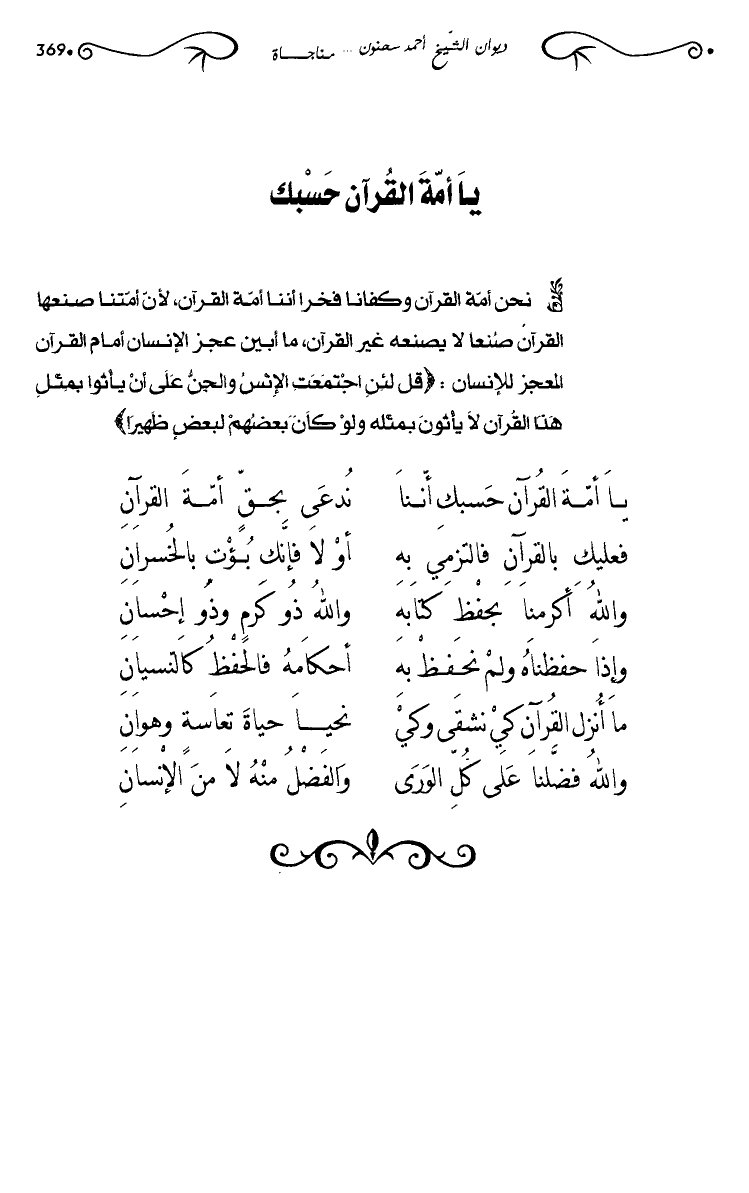 ديوان الشيخ أحمد سحنون ... مناجاة 369
يا أمّةَ القُرآن حَسْبك
نحن أمّة القرآن وكفانا فخرا أننا أمّة القرآن، لأنّ أمّتنا صنعها
القرآن صُنعا لا يصنعه غير القرآن، ما أبين عجز الإنسان أمام القرآن
المعجز للإنسان : ﴿قل لئنِ اجْتمَعَت الإنْسُ والجنُّ عَلَى أنْ يأتُوا بمِثْلِ
هَذا القُرآن لاَ يأتُونَ بمثله ولوْ كاَنَ بعضُهُمْ لبعضٍ ظَهِيرًا﴾
ياَ أمّةَ القُرآن حَسبكِ أنّناَ نُدعَى بِحقٍّ أمّةَ القرآنِ
فعليكِ بالقرآنِ فالتزمِي بهِ أوْ لاَ فإنَّك بُؤْتِ بالخُسرانِ
واللهُ أكرمناَ بحِفْظِ كتَابهِ واللهُ ذُو كرمٍ وذُو إحْسانِ
وإذَا حفظناهُ ولمْ نحْفظْ بهِ أحكامَهُ فالحْفظُ كالنّسيانِ
ماَ أُنزل القُرآن كيْ نشقَى وكيْ نحْياَ حياةَ تعاَسةٍ وهوانِ
واللهُ فضّلناَ عَلَى كُلِّ الوَرَى والفضْلُ منْهُ لاَ منَ الإنْسانِ